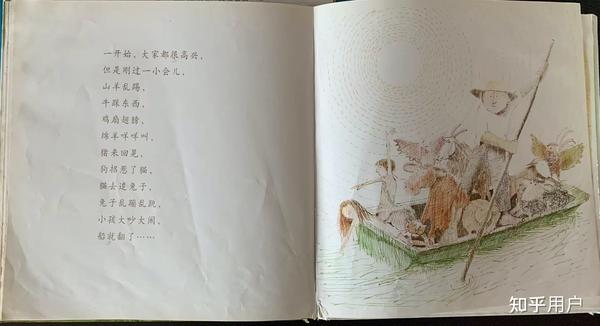 一开始，大家都很高兴，
但是刚过一小会儿，
山羊乱踢，
牛踩东西，
鸡扇翅膀，
绵羊咩咩叫，
猪来回晃，
狗招惹了猫，
猫去追兔子，
兔子乱蹦乱跳，
小孩大吵大闹，
船就翻了……
知乎用户